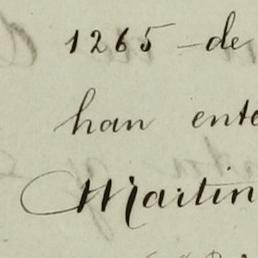 1265 - de
han ente
Martin